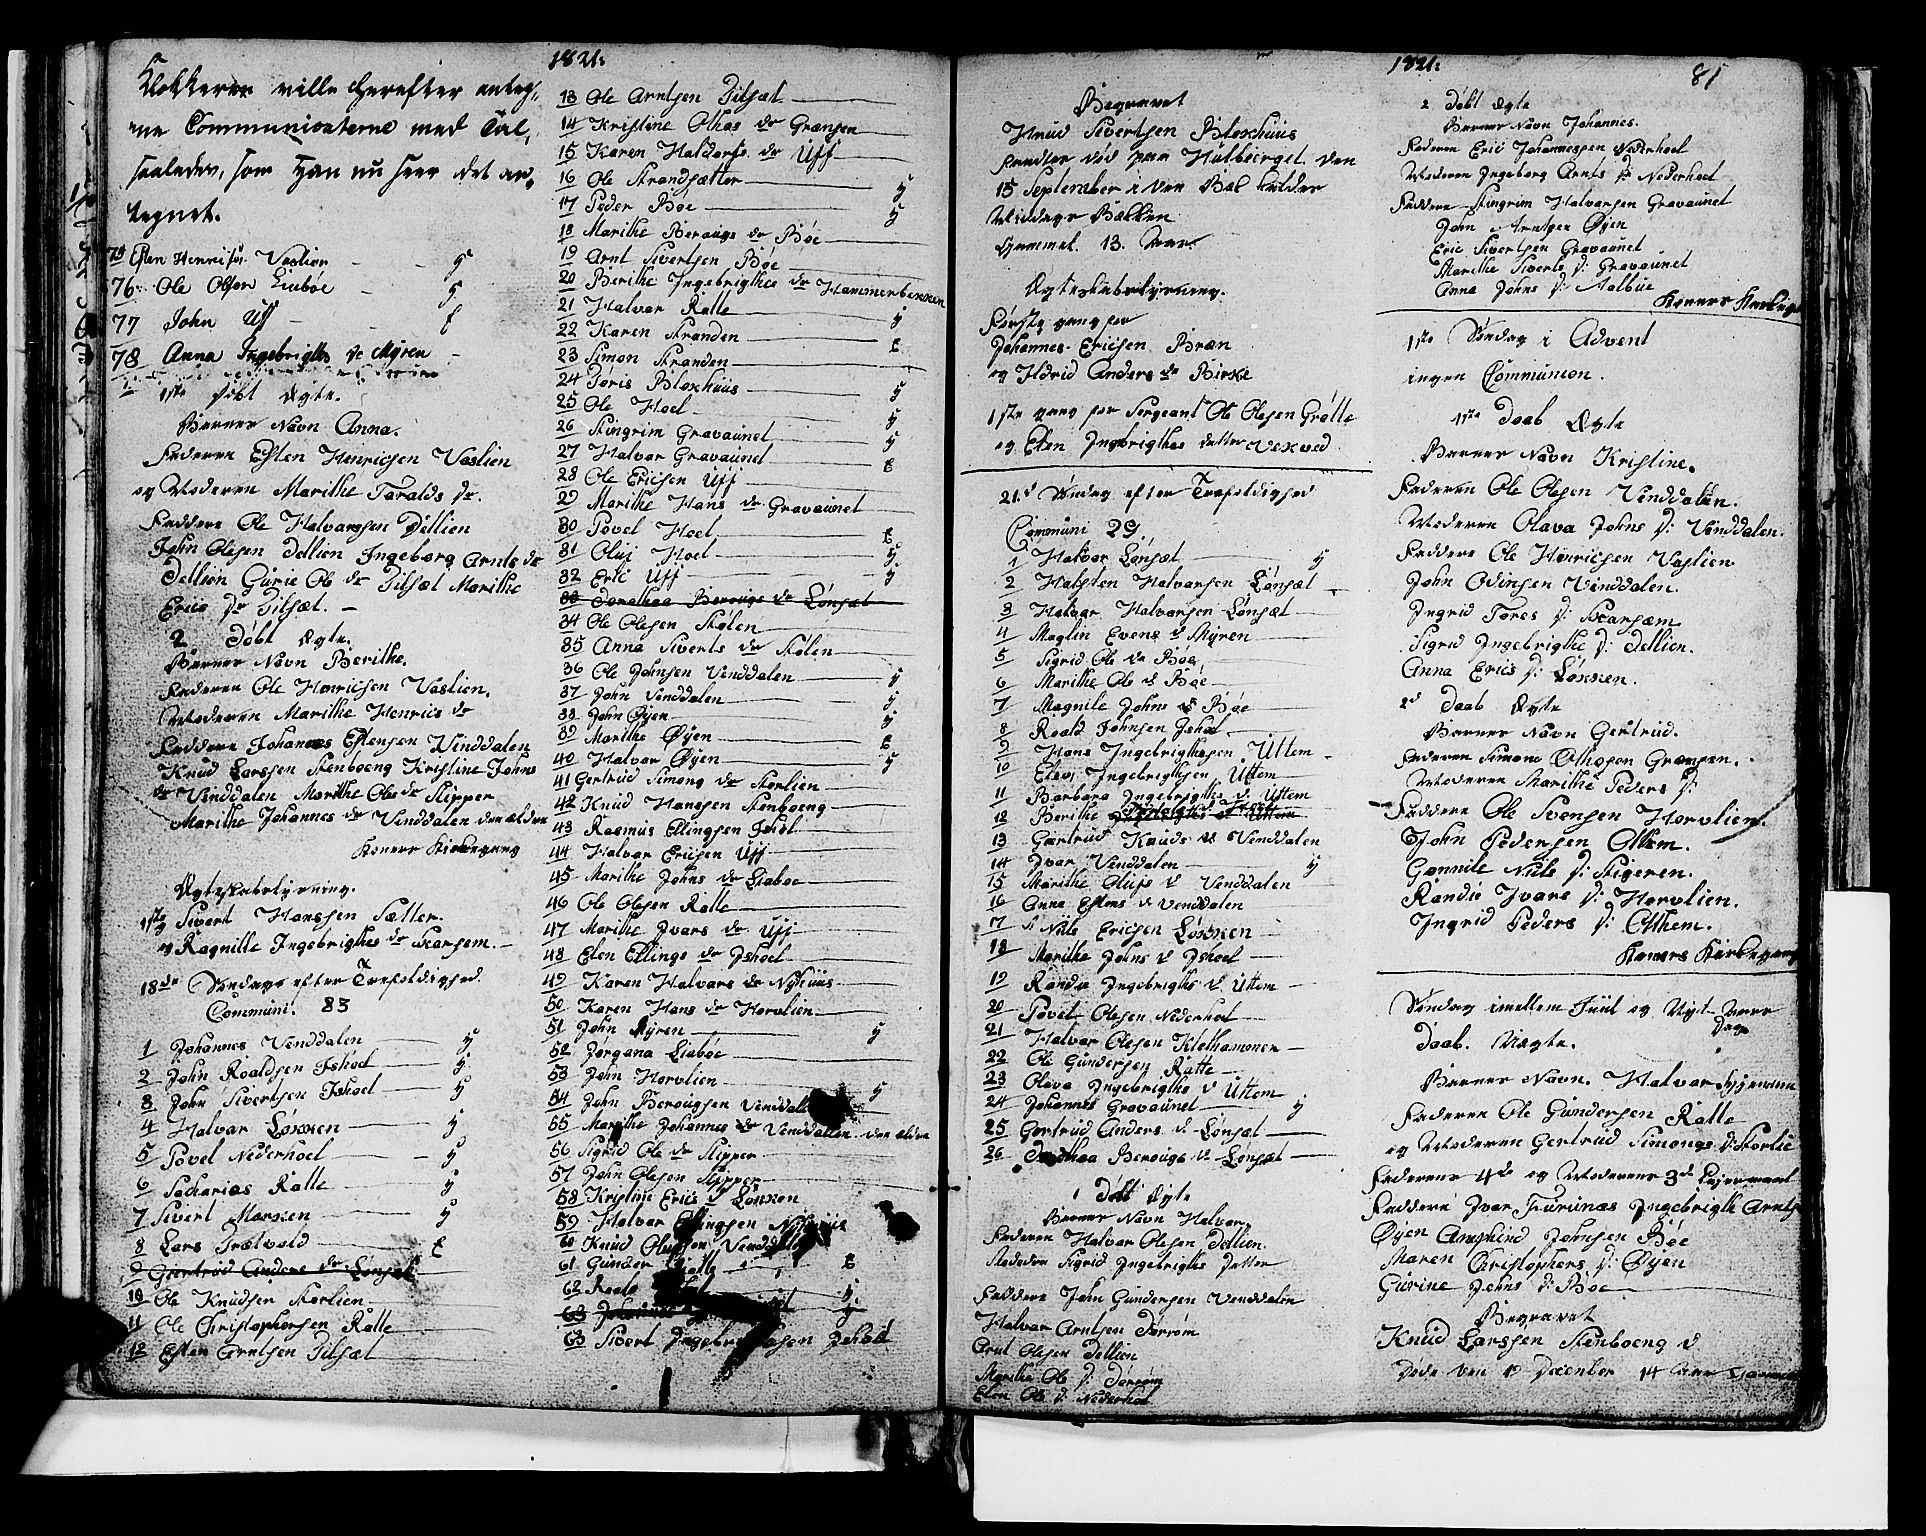 1821.
Klokkeren ville herefter anteg,
ne Communicaterne med Tal,
saaledes, som Han nu heer det an,
tegnet.
75 Esten Henrichs: Vaslien y
76 Ole Olsen Liabøe y
77 John Uff E
78 Anna Ingebrigths dr Myren
1ste døbt Ægte.
Barnets Navn Anna.
Faderen Esten Henrichsen Vaslien
og Moderen Marithe Taralds dr.
Faddere Ole Halvarsen Dellien
John Olesen Dellien Ingeborg Arnts dr
Dellien Gurie Ole dr Tilsæt Marithe
Erics dr Tilsæt.
2 døbt Ægte.
Barnets Navn Berithe.
Faderen Ole Henrichsen Vaslien,
Moderen Marithe Henrics dr
Faddere Johannes Estensen Vinddalen
Knud Larssen Stenboeng Kristine Johns
dr Vinddalen Marithe Ole dr Slipper
Marithe Johannes dr Vinddalen den ældre
Konens Kirkegang
Ægteskabslysning.
1ste Sivert Hanssen Sætter.
og Ragnille Ingebrigthes dr Skarsem.
18de Søndags efter Trefoldighed
Communi. 83
1 Johannes Venddalen y
2 John Roaldsen Ishoel y
3 John Sivertsen Ishoel y
4 Halvar Løkken y
5 Povel Nederhoel y
6 Sacharias Ralle y
7 Sivert Marken y
8 Lars Trætvold E
9 Giertrud Anders dr Lønsæt
10 Ole Knudsen Storlien
11 Ole Christophersen Ralle
12 Esten Arntsen Tilsæt
13 Ole Arntsen Tilsæt
14 Kristine Olhas dr Gransen
15 Karen Haldors dr Uff
16 Ole Strandsætter y
17 Peder Bøe y
18 Marithe Berougs dr Bøe
19 Arnt Sivertsen Bøe
20 Berithe Ingebrigthes dr Hammerbekken
21 Halvar Ralle y
22 Karen Stranden E
23 Simon Stranden
24 Joris Blokhuus y
25 Ole Hoel y
26 Stingrim Gravaunet y
27 Halvar Gravaunet E
28 Ole Ericsen Uff
29 Marithe Hans dr Gravaunet
30 Povel Hoel E
31 Oluf Hoel y
32 Eric Uff y
33 Dorothea Berougs dr Lønsæt
34 Ole Olesen Stølen
35 Anna Siverts dr Stølen
36 Ole Johnsen Venddalen y
37 John Venddalen y
38 John Øyen y
39 Marithe Øyen E
40 Halvar Øyen y
41 Gertrud Simons dr Storlien
42 Knud Hanssen Stenboeng
43 Rasmus Ellingsen Ishol
44 Halvar Ericsen Uff
45 Marithe Johns dr Liabøe
46 Ole Olesen Ralle
47 Marithe Ivars dr Uff
48 Elen Ellings dr Ishoel
49 Karen Halvars dr Nyhuus
50 Karen Hans dr Horvlien
51 John Myren y
52 Jørgana Liabøe
53 John Horvlien y
54 John Berougsen Venddalen
55 Marithe Johannes dr Venddalen den ældre
56 Sigrid Ole dr Slipper
57 John Olesen Slipper
58 Kristine Erics d Løkken
59 Halvar Ellingsen Nyhuus
60 Knud Olufsen Venddalen
61 Gunder Ralle E
62 Roald y
63 y
63 Sivert Ingebrigthsen Ishoel
1821. 81
Begravet
Knud Sivertsen Blokhuus
funden død paa Hulbierget den
15 September i den Bæk kaldes
Middags Bækken
Gammel. 13. Aar.
Ægteskabslysning.
Første gang for
Johannes Ericsen Bræn
og Ildrid Anders dr Birke
1ste gang for Sergeant Ole Olesen Grøtte
og Elen Ingebrigthes datter Vekved
21d Søndag efter Trefoldighed
Communi 29
1 Halvar Lønsæt y
2 Halsten Halvarsen Lønsæt
3 Halvar Halvarsen Lønsæt
4 Maglin Evens d Myren
5 Sigrid Ole dr Bøe
6 Marithe Ole d Bøe
7 Magnile Johns d Bøe
8 Roald Johnsen Ishol
9 Hans Ingebrigthsen Uttem
10 Elev Ingebrigthsen Uttem
11 Barbara Ingebrigths d. Uttem
12 Berithe Ingebrigths d Uttem
13 Gærtrud Knuds d Venddalen
14 Ivar Venddalen y
15 Marithe Olufs d Venddalen
16 Anna Estens d Venddalen
17 Nils Ericsen Løkken
18 Marithe Johns d Ishoel
19 Randie Ingebrigths d. Uttem
20 Povel Olesen Nederhoel
21 Halvar Olesen Klethammer
22 Ole Gundersen Ralle
23 Olava Ingebrigths d Uttem
24 Johannes Gravaunet y
25 Gertrud Anders d. Lønsæt
26 Dorothea Berougs d. Lønsæt
1 Døbt Ægte
Barnets Navn Halvar,
Faderen Halvar Olesen Dellien.
Moderen Sigrid Ingebrigths Datter
Faddere John Gundersen Venddalen
Halvar Arntsen Dørrøm
Arnt Olesen Dellien
Marithe Ole D. Dørrøm
Elen Ole D. Nederhoel
2 Døbt Ægte
Barnets Navn Johannes.
Faderen Eric Johannessen Nederhoel
Moderen Ingeborg Arnts D: Nederhoel
Faddere Stingrim Halvarsen Gravaunet
John Arntsen Øyen
Eric Sivertsen Gravaunet
Marithe Siverts D: Gravaunet
Anna Johns D: Aalbue
Konens Kirkegang
1ste Søndag i Advent
ingen Communion.
1ste Daab Ægte
Barnets Navn Kristine.
Faderen Ole Olesen Venddalen.
Moderen Olava Johns D: Venddalen.
Faddere Ole Henrichsen Vaslien.
John Odinsen Venddalen.
Ingrid Tores D: Skarsæm
Sigrid Ingebrigths D: Dellien.
Anna Erics D: Løkken.
2d Daab Ægte
Barnets Navn Gertrud.
Faderen Simon Olhason Grænsen.
Moderen Marithe Peders D:
Faddere Ole Svensen Horvlien
John Pedersen Olhem.
Gonnile Niels D: Stigeren.
Randi Ivars D: Horvlien.
Ingrid Peders D: Olhem.
Konens Kirkegang
Søndag imellem Juul og Nyt Aars
Dag
Daab. Uægte.
Barnets Navn. Halvar
Faderen Ole Gundersen Ralle
og Moderen Gertrud Simons D: Storlie
Faderens 4de og Moderens 3de Leiermaal
Faddere Ivar Furunæs Ingebrigth Arntsen
Øyen Amphind Johnsen Bøe
Maren Christophers D: Øyen
Gurine Johns D: Bøe
Begravet
Knud Larssen Stenboeng d
Døde den 19 December 14 Aar Gammel